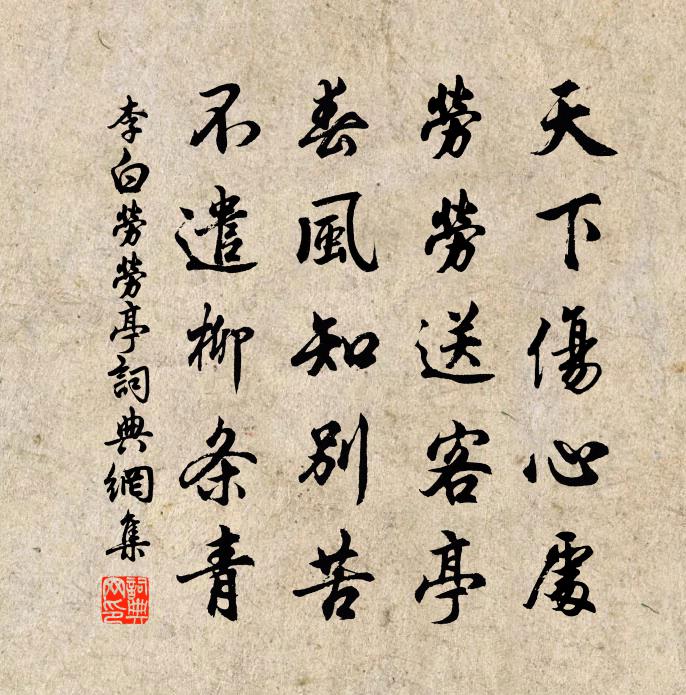 天下傷心處
勞勞送客亭
春風知別苦
不遣柳条青
李白勞勞亭詞典網集
詞典网印